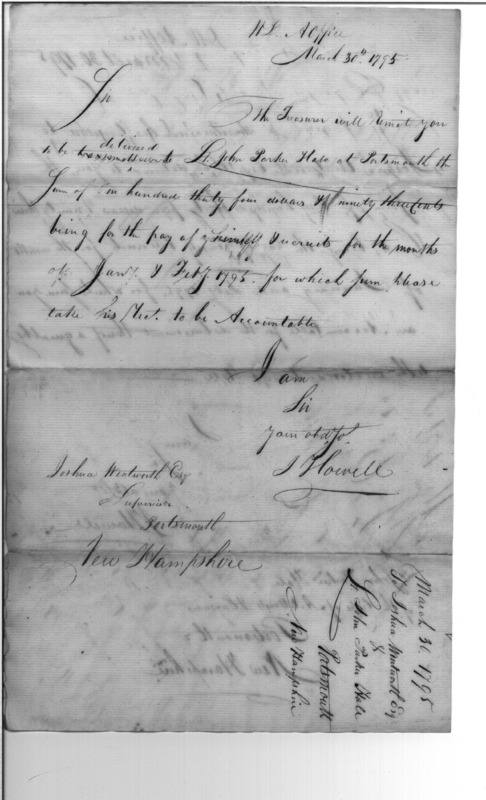 March 30th 1795
Sir
The Treasurer will remit you
delivered
to be to Lt. John Parker Hale at Portsmouth the
Sum of One hundred thirty four dollars & ninety three Cents
being for the pay of himself & recruits for the months
of Jany. & Feby 1795. for which sum please
take his Rect. to be Accountable
I am
Sir
your obdt. St.
J Howell
Joshua Wentworth Esq
Supervisor
Portsmouth
New Hampshire
March 30 1795
To Joshua Wentworth Esq
&
Lt John Parker Hale
Portsmouth
New Hampshire